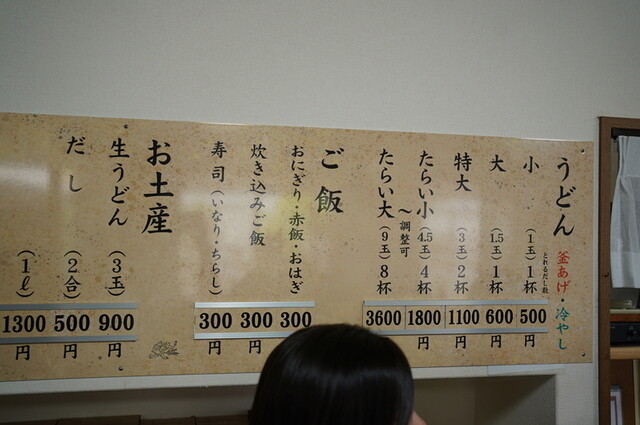 うどん 釜あげ・冷やし
とれるだし数
小 (1玉) 1杯 500円
大 (1.5玉) 1杯 600円
特大 (3玉) 2杯 1100円
たらい小 (4.5玉) 4杯 1800円
〜調整可
たらい大 (9玉) 8杯 3600円
ご飯
おにぎり・赤飯・おはぎ 300円
炊き込みご飯 300円
寿司 (いなり・ちらし) 300円
お土産
生うどん (3玉) 900円
だし (2合) 500円
(1ℓ) 1300円